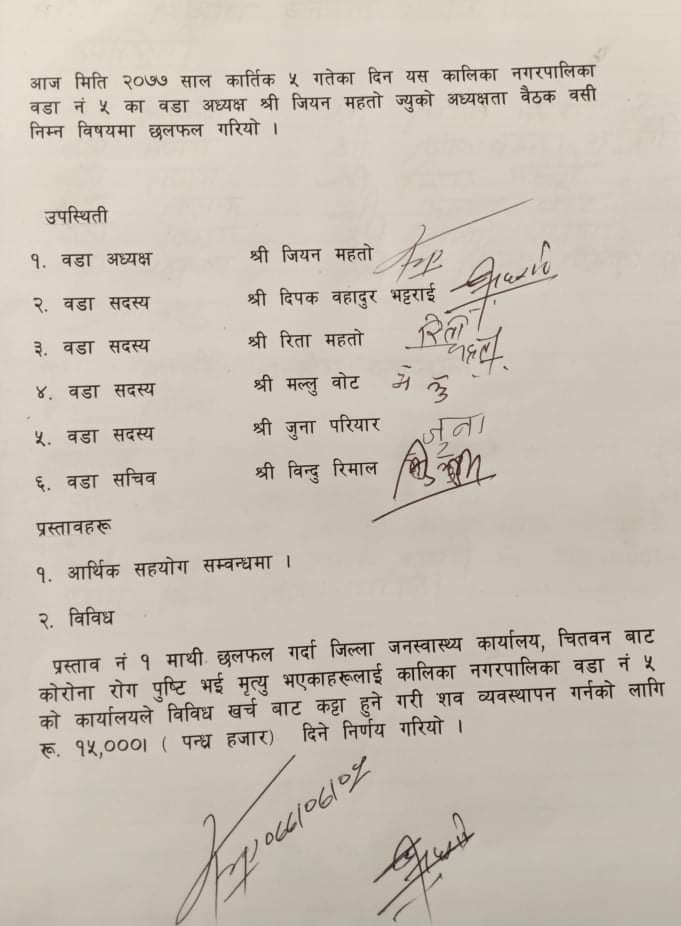 आज मिति २०७७ साल कार्तिक ५ गतेका दिन यस कालिका नगरपालिका
वडा नं ५ का वडा अध्यक्ष श्री जियन महतो ज्युको अध्यक्षता वैठक वसी
निम्न विषयमा छलफल गरियो ।
उपस्थिती
१. वडा अध्यक्ष श्री जियन महतो
२. वडा सदस्य श्री दिपक वहादुर भट्टराई
३. वडा सदस्य श्री रिता महतो
४. वडा सदस्य श्री मल्लु वोट
५. वडा सदस्य श्री जुना परियार जुना
६. वडा सचिव श्री विन्दु रिमाल
प्रस्तावहरू
१. आर्थिक सहयोग सम्वन्धमा ।
२. विविध
प्रस्ताव नं १ माथी छलफल गर्दा जिल्ला जनस्वास्थ्य कार्यालय, चितवन बाट
कोरोना रोग पुष्टि भई मृत्यु भएकाहरूलाई कालिका नगरपालिका वडा नं ५
को कार्यालयले विविध खर्च बाट कट्टा हुने गरी शव व्यवस्थापन गर्नको लागि
रू. १५,०००। ( पन्ध्र हजार) दिने निर्णय गरियो ।